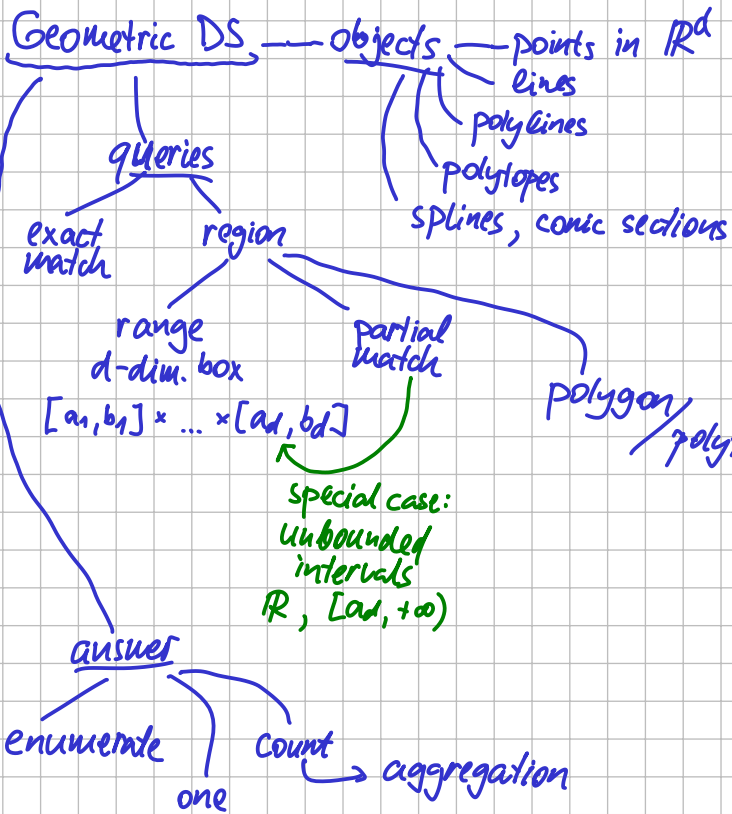 Geometric DS — objects — points in ℝᵈ
lines
polylines
polytopes
splines, conic sections
queries
exact match
region
range
d-dim. box
[a₁,b₁] × ... × [a_d, b_d]
partial match
polygon /
special case:
unbounded
intervals
ℝ, [a_d, +∞)
answer
enumerate
one
count
aggregation